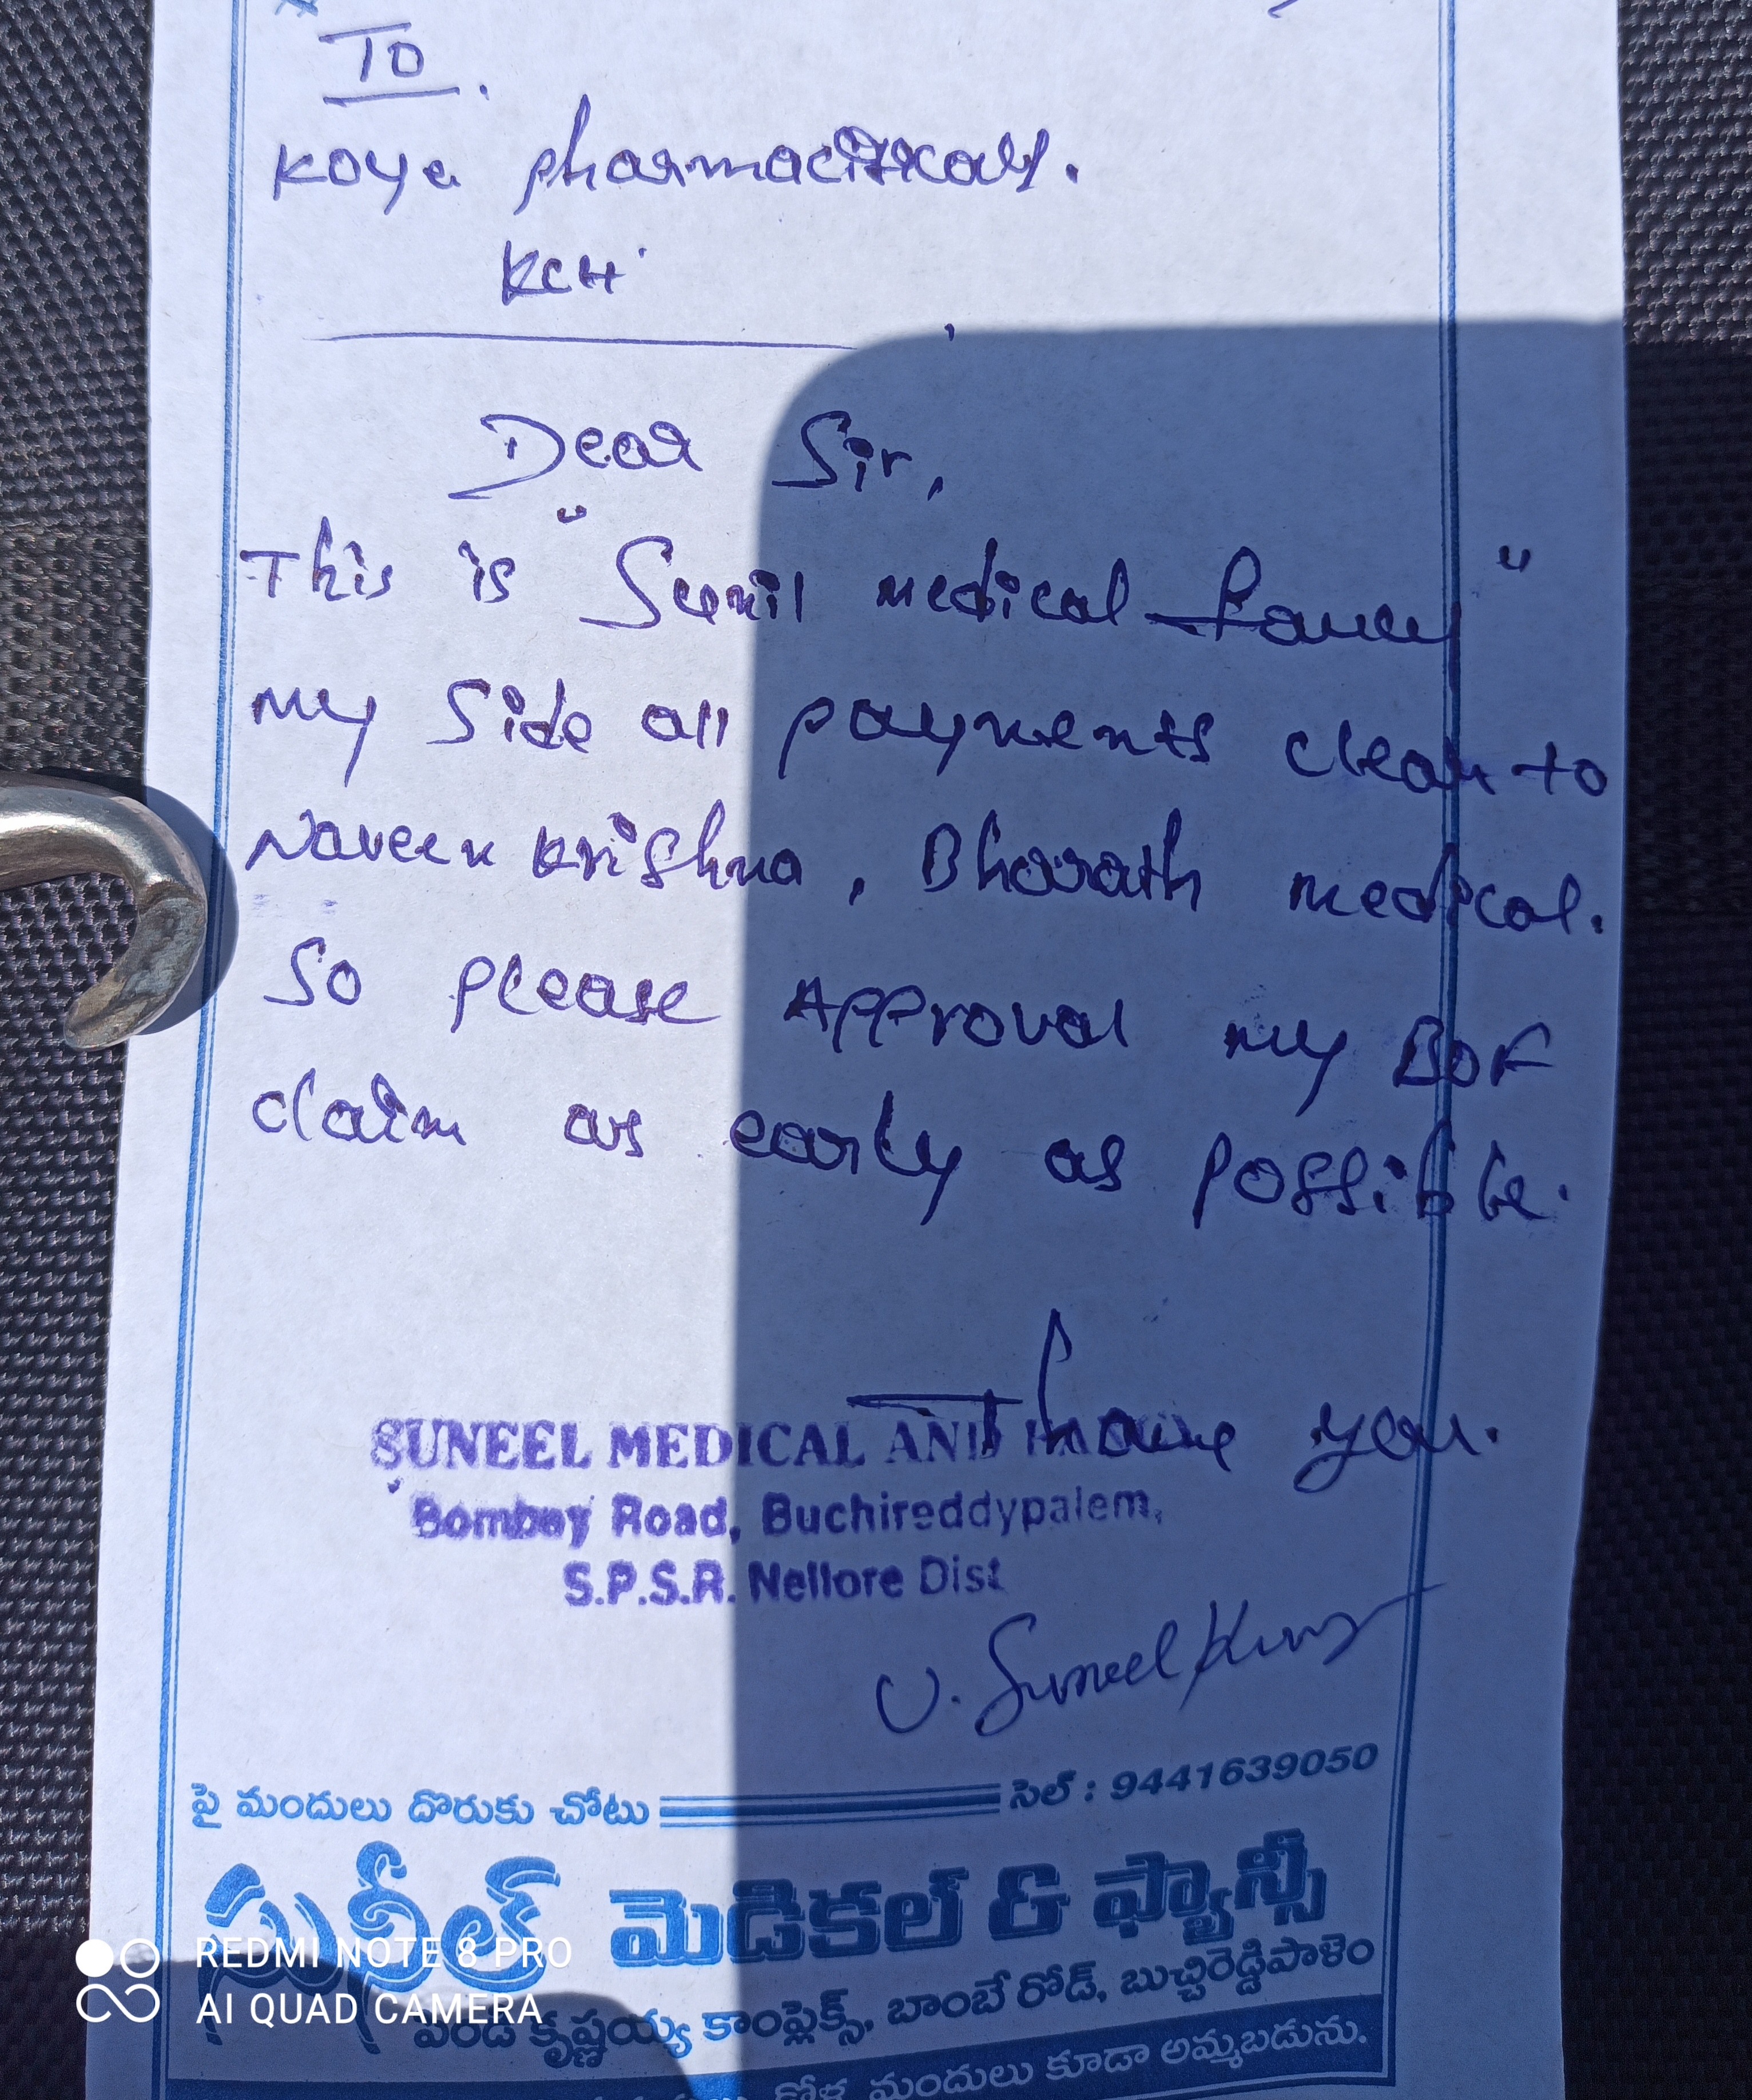 TO.
Koya pharmaciticals.
KCH.
Dear Sir,
This is "Sunil medical fancy"
my side all payments clear to
Naveen krishna, Bharath medical.
So please Approval my BOF
claim as early as possible.
Thank you.
SUNEEL MEDICAL AND
Bombay Road, Buchireddypalem,
S.P.S.R. Nellore Dist
U. Suneel Kumar
పై మందులు దొరుకు చోటు సెల్ : 9441639050
సునీల్ మెడికల్ & ఫ్యాన్సీ
కృష్ణయ్య కాంప్లెక్స్, బాంబే రోడ్, బుచ్చిరెడ్డిపాళెం
కోళ్ల మందులు కూడా అమ్మబడును.
REDMI NOTE 8 PRO
AI QUAD CAMERA